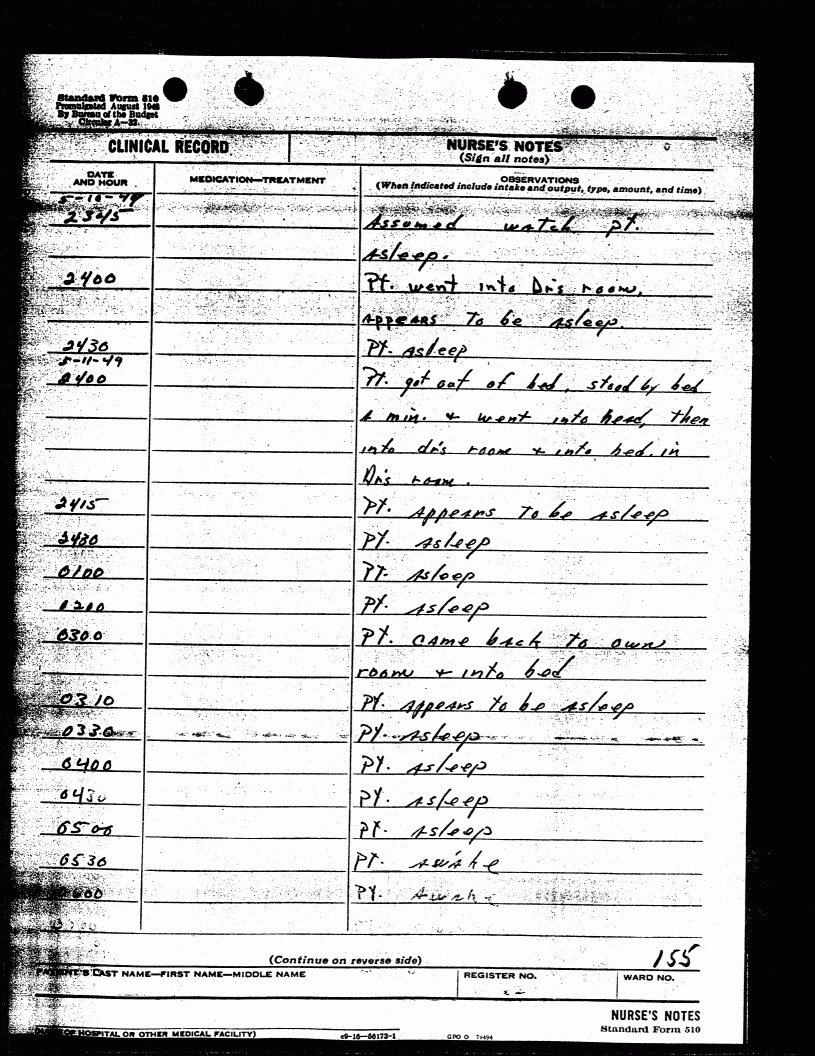 Standard Form 510
Promulgated August 1948
By Bureau of the Budget
Circular A—32
CLINICAL RECORD
NURSE'S NOTES
(Sign all notes)
DATE AND HOUR
MEDICATION—TREATMENT
OBSERVATIONS
(When indicated include intake and output, type, amount, and time)
5-10-49
2345 Assumed watch pt.
asleep.
2400 Pt. went into Dr's room,
appears to be asleep.
2430 Pt. asleep
5-11-49
2400 Pt. got out of bed, stood by bed
a min. & went into head, then
into dr's room & into bed in
Dr's room.
2415 Pt. appears to be asleep
2430 Pt. asleep
0100 Pt. asleep
0200 Pt. asleep
0300 Pt. came back to own
room & into bed
0310 Pt. appears to be asleep
0330 Pt. asleep
0400 Pt. asleep
0430 Pt. asleep
0500 Pt. asleep
0530 Pt. awake
0600 Pt. Awake
(Continue on reverse side)
155
PATIENT'S LAST NAME—FIRST NAME—MIDDLE NAME
REGISTER NO.
WARD NO.
NURSE'S NOTES
Standard Form 510
OF HOSPITAL OR OTHER MEDICAL FACILITY)
c9-16—56173-1
GPO